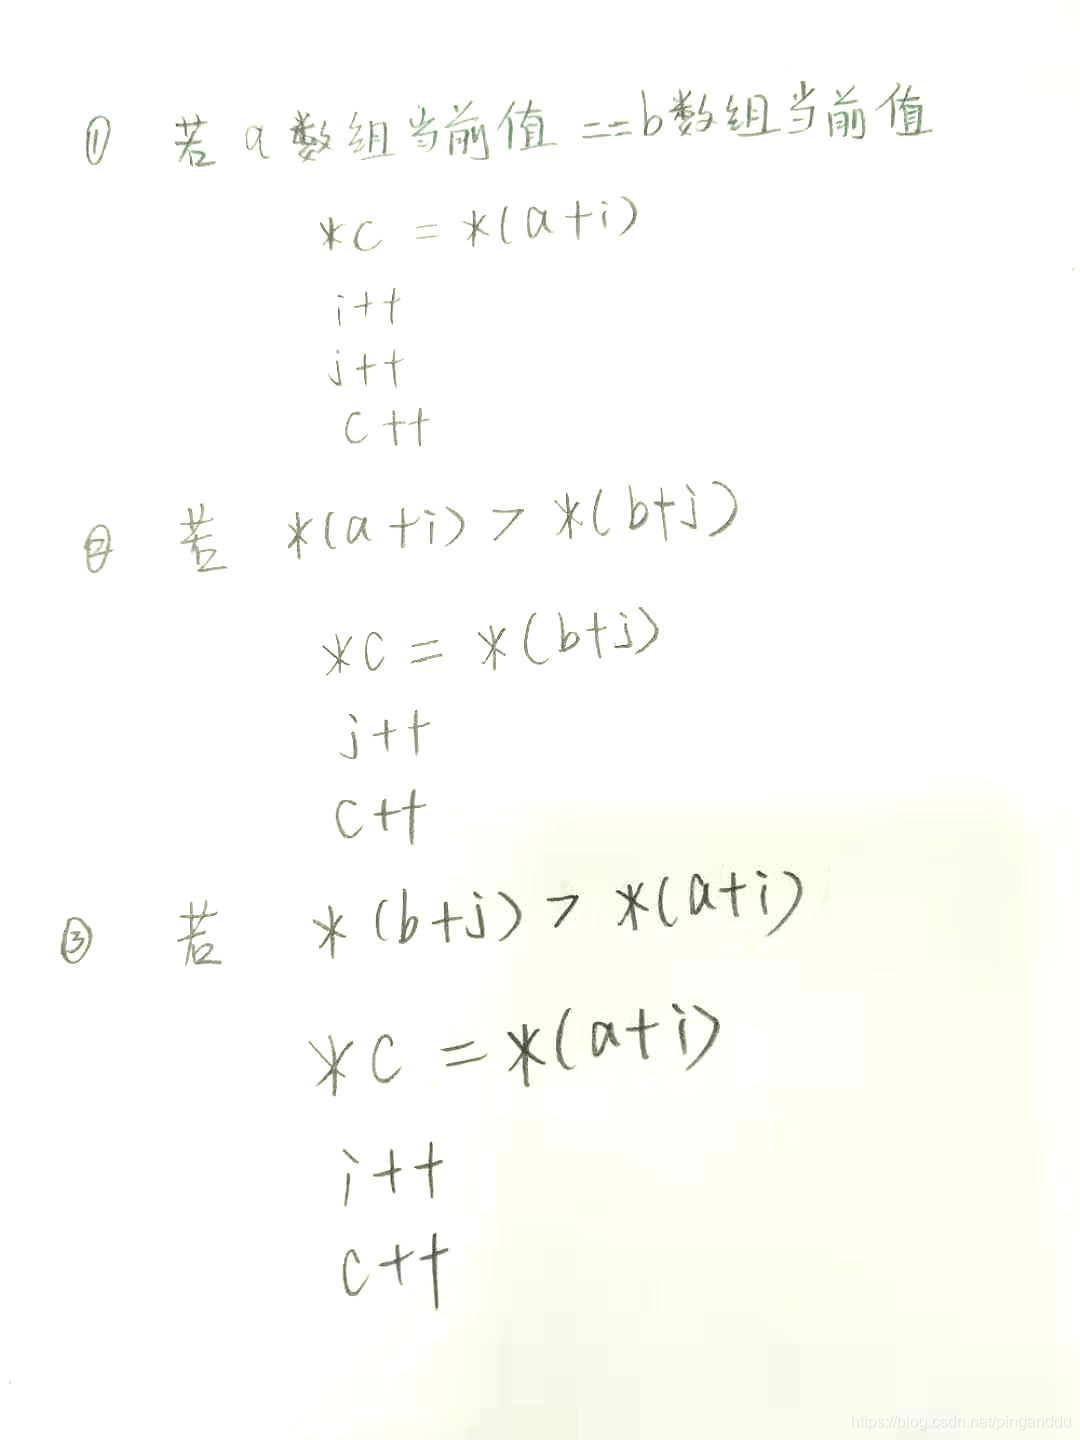 ① 若 a数组当前值==b数组当前值
*c = *(a+i)
i++
j++
c++
② 若 *(a+i) > *(b+j)
*c = *(b+j)
j++
c++
③ 若 *(b+j) > *(a+i)
*c = *(a+i)
i++
c++
https://blog.csdn.net/pinganddu